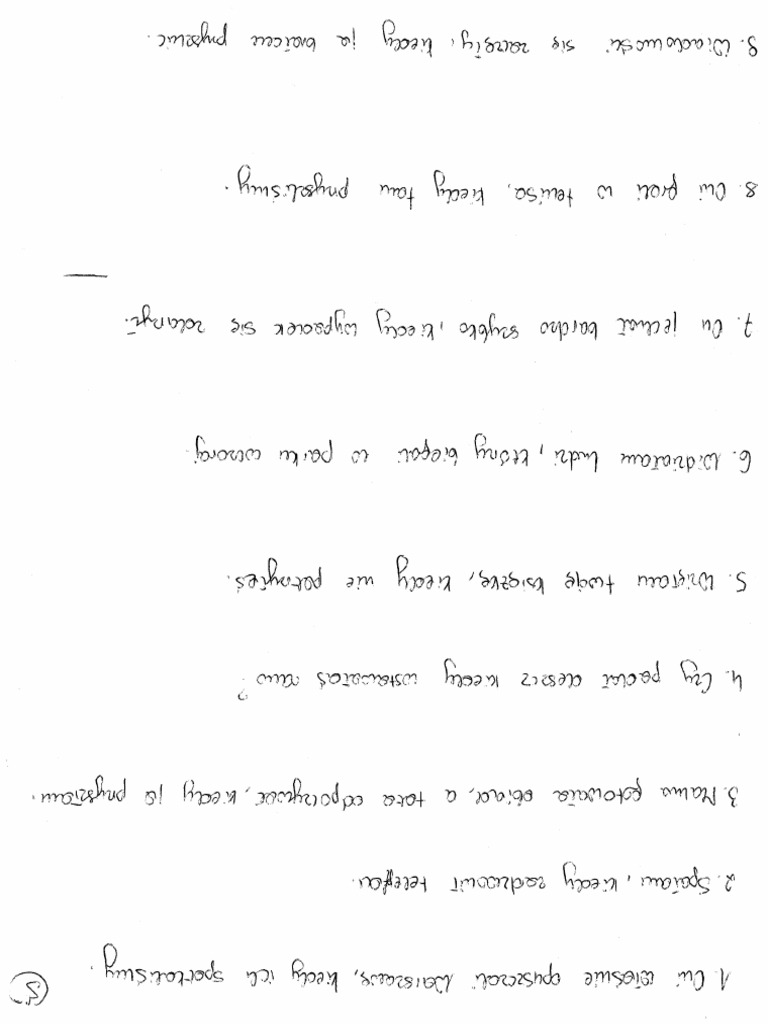 5
1. Oni właśnie opuszczali Warszawę, kiedy ich spotkaliśmy.
2. Spałam, kiedy zadzwonił telefon.
3. Mama gotowała obiad, a tata odpoczywał, kiedy ja przyszłam.
4. Czy padał deszcz kiedy wstawałaś rano?
5. Wzięłam twoję książkę, kiedy nie patrzyłeś.
6. Widziałam ludzi, którzy biegali w parku wczoraj.
7. On jechał bardzo szybko, kiedy wypadek się zdarzył.
8. Oni grali w tenisa, kiedy tam przyszliśmy.
9. Wiadomości się zaczęły, kiedy ja brałem prysznic.